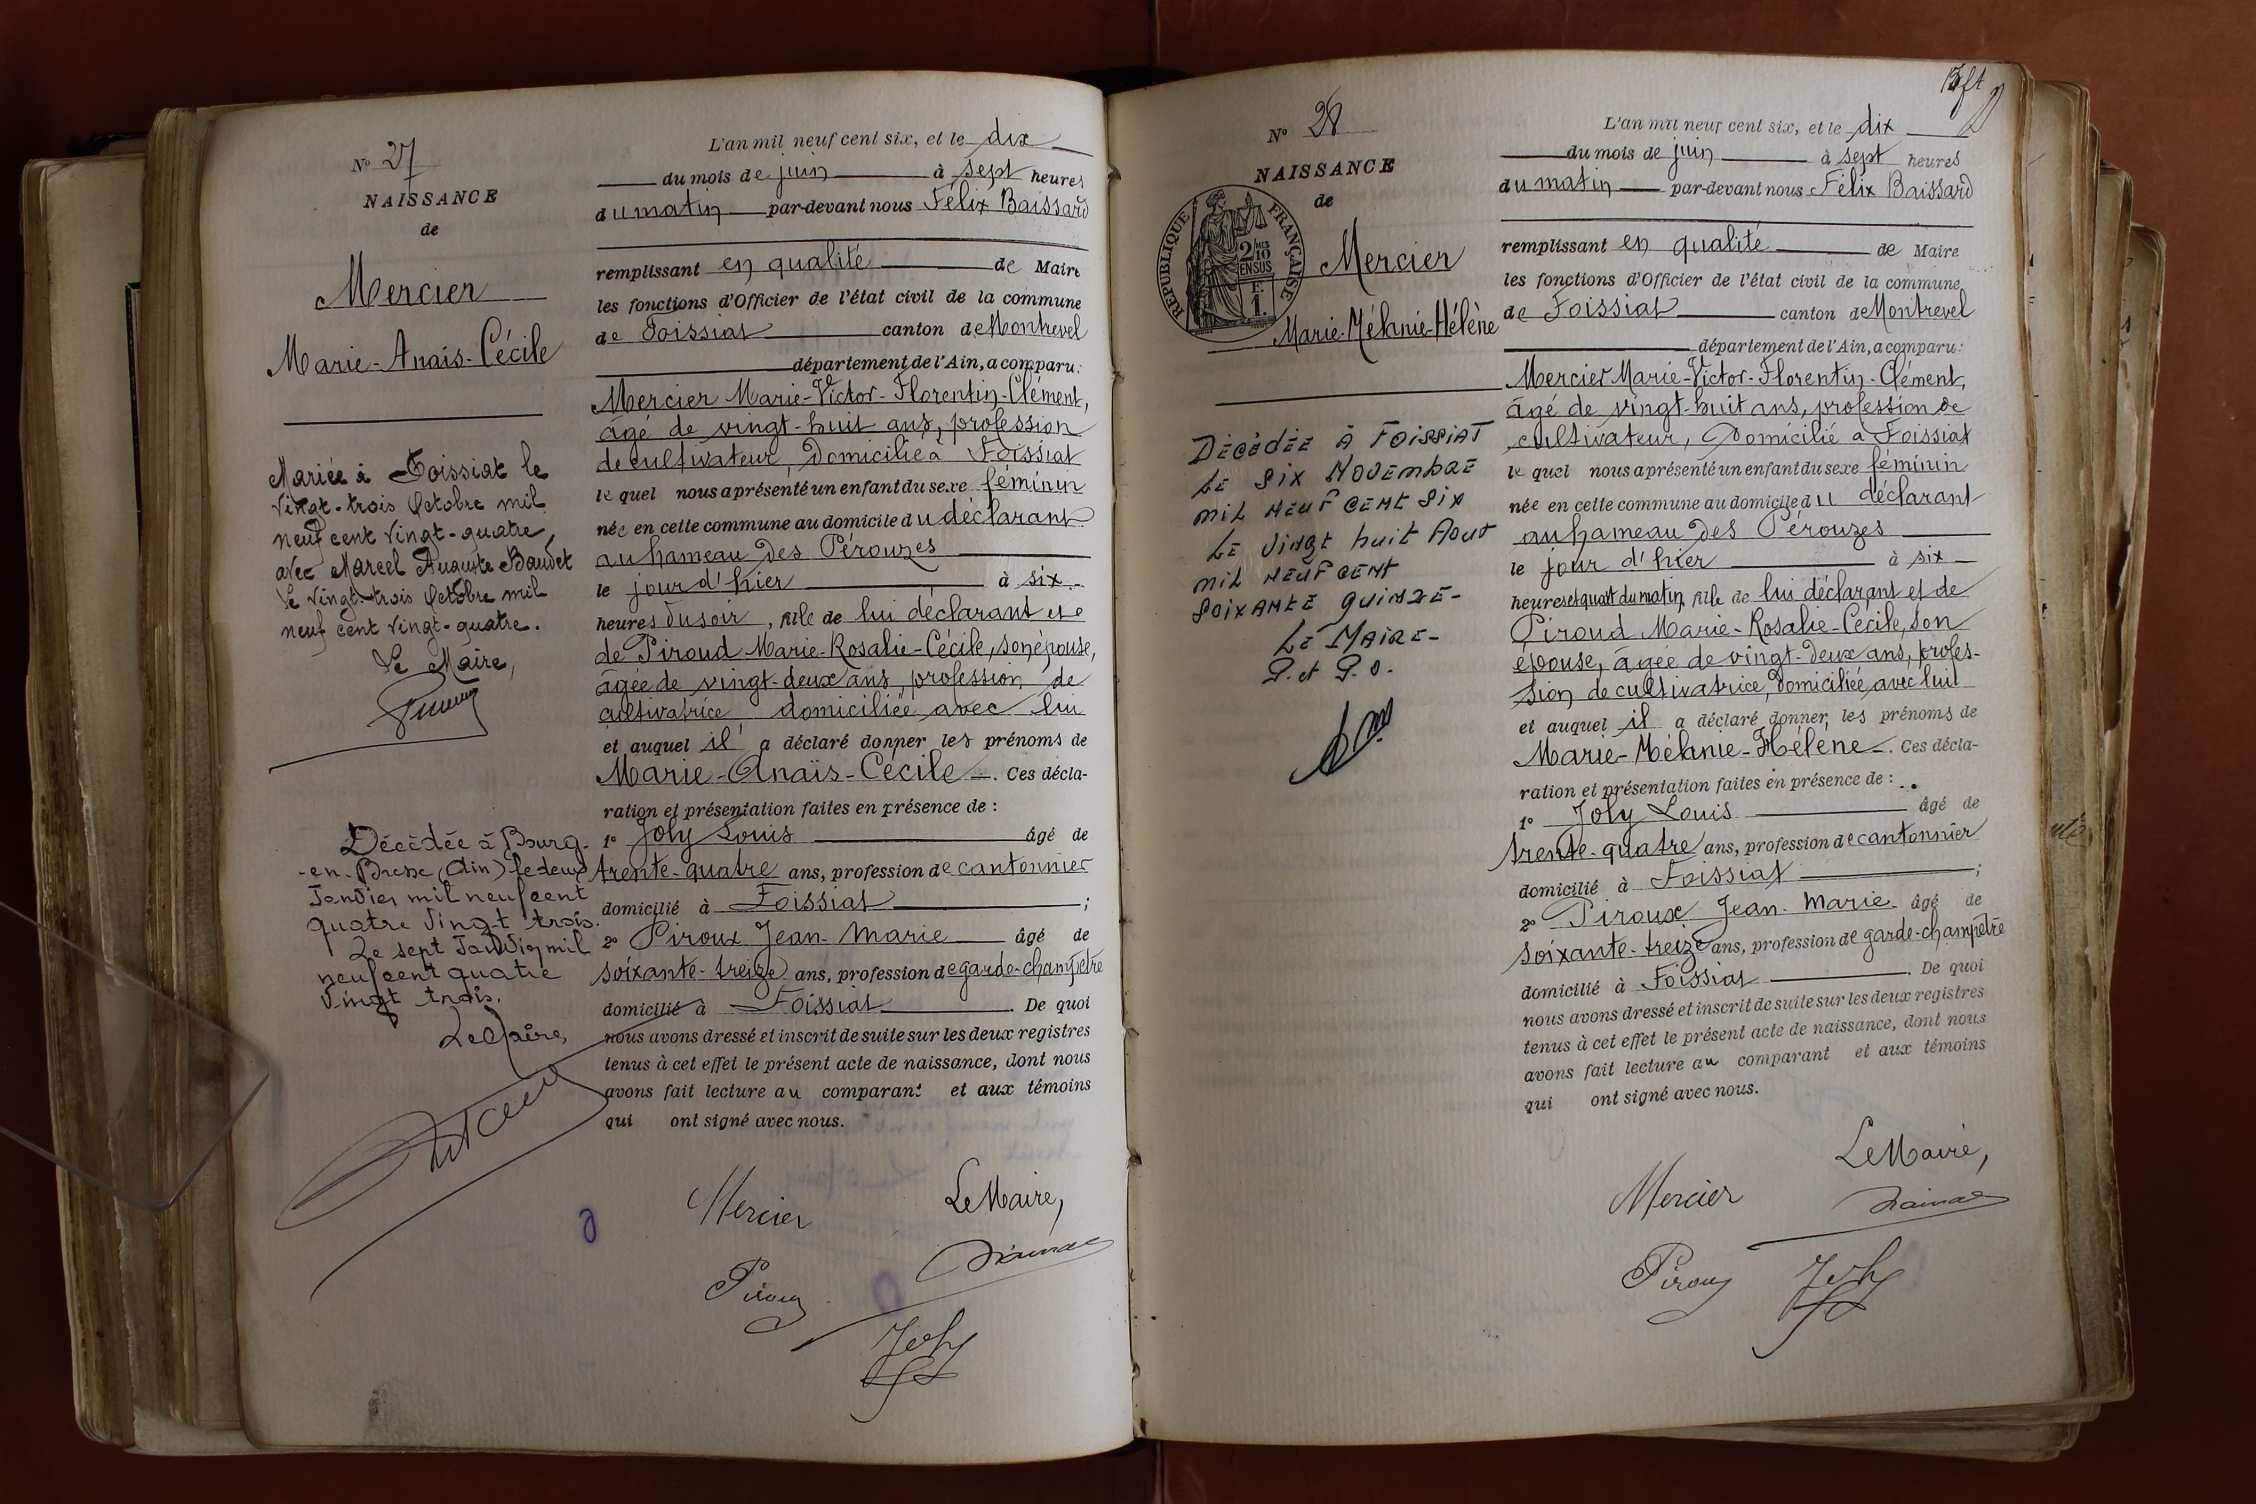 N° 27
NAISSANCE
de
Mercier
Marie-Anaïs-Cécile
Mariée à Foissiat le
vingt-trois Octobre mil
neuf cent vingt-quatre
avec Marcel Auguste Baudet
Le vingt-trois Octobre mil
neuf cent vingt-quatre.
Le Maire,
Décédée à Bourg-
-en-Bresse (Ain) le deux
Janvier mil neuf cent
quatre vingt trois.
Le sept Janvier mil
neuf cent quatre
vingt trois.
Le Maire,
L'an mil neuf cent six, et le dix
du mois de juin à sept heures
du matin par-devant nous Félix Baissard
remplissant en qualité de Maire
les fonctions d'Officier de l'état civil de la commune
de Foissiat canton de Montrevel
département de l'Ain, a comparu:
Mercier Marie-Victor-Florentin-Clément,
âgé de vingt-huit ans, profession
de cultivateur, domicilié à Foissiat
le quel nous a présenté un enfant du sexe féminin
née en cette commune au domicile du déclarant
au hameau des Pérouzes
le jour d'hier à six
heures du soir, fille de lui déclarant et
de Piroud Marie-Rosalie-Cécile, son épouse,
âgée de vingt-deux ans, profession de
cultivatrice domiciliée avec lui
et auquel il a déclaré donner les prénoms de
Marie-Anaïs-Cécile. Ces décla-
ration et présentation faites en présence de :
1° Joly Louis âgé de
trente-quatre ans, profession de cantonnier
domicilié à Foissiat ;
2° Piroux Jean-Marie âgé de
soixante-treize ans, profession de garde-champêtre
domicilié à Foissiat. De quoi
nous avons dressé et inscrit de suite sur les deux registres
tenus à cet effet le présent acte de naissance, dont nous
avons fait lecture au comparant et aux témoins
qui ont signé avec nous.
Mercier
Le Maire,
Piroux
Joly
N° 28
NAISSANCE
de
REPUBLIQUE FRANÇAISE
2/10
EN SUS
F.
1.
Mercier
Marie-Mélanie-Hélène
DÉCÉDÉE À FOISSIAT
LE SIX NOVEMBRE
MIL NEUF CENT SIX
LE VINGT HUIT AOUT
MIL NEUF CENT
SOIXANTE QUINZE-
LE MAIRE-
P. et P. O.
L'an mil neuf cent six, et le dix
du mois de juin à sept heures
du matin par-devant nous Félix Baissard
remplissant en qualité de Maire
les fonctions d'Officier de l'état civil de la commune
de Foissiat canton de Montrevel
département de l'Ain, a comparu:
Mercier Marie-Victor-Florentin-Clément,
âgé de vingt-huit ans, profession de
cultivateur, domicilié à Foissiat
le quel nous a présenté un enfant du sexe féminin
née en cette commune au domicile du déclarant
au hameau des Pérouzes
le jour d'hier à six
heures et quart du matin, fille de lui déclarant et de
Piroud Marie-Rosalie-Cécile, son
épouse, âgée de vingt-deux ans, profes-
sion de cultivatrice, domiciliée avec lui
et auquel il a déclaré donner les prénoms de
Marie-Mélanie-Hélène. Ces décla-
ration et présentation faites en présence de :
1° Joly Louis âgé de
trente-quatre ans, profession de cantonnier
domicilié à Foissiat ;
2° Piroux Jean-Marie âgé de
soixante-treize ans, profession de garde-champêtre
domicilié à Foissiat. De quoi
nous avons dressé et inscrit de suite sur les deux registres
tenus à cet effet le présent acte de naissance, dont nous
avons fait lecture au comparant et aux témoins
qui ont signé avec nous.
Le Maire,
Mercier
Piroux
Joly